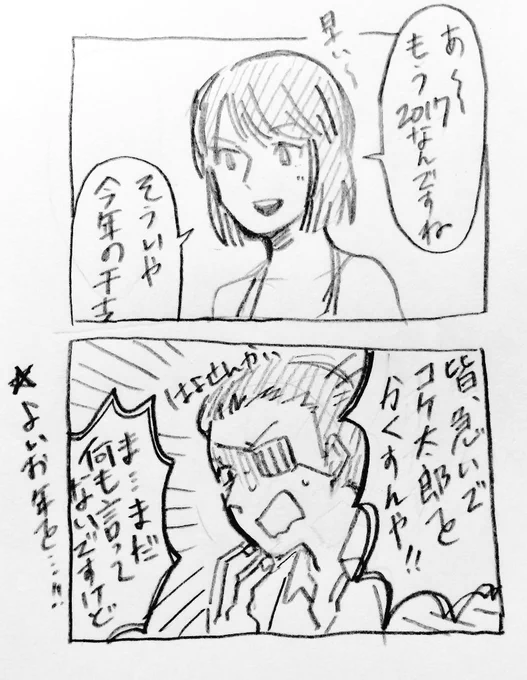 あ〜
もう
2017
なんですね
早い〜
そういや
今年の干支
皆、急いで
コケ太郎を
かくすんや!!
はよせんかい
ま…まだ
何も言って
ないですけど
★よいお年を…!!